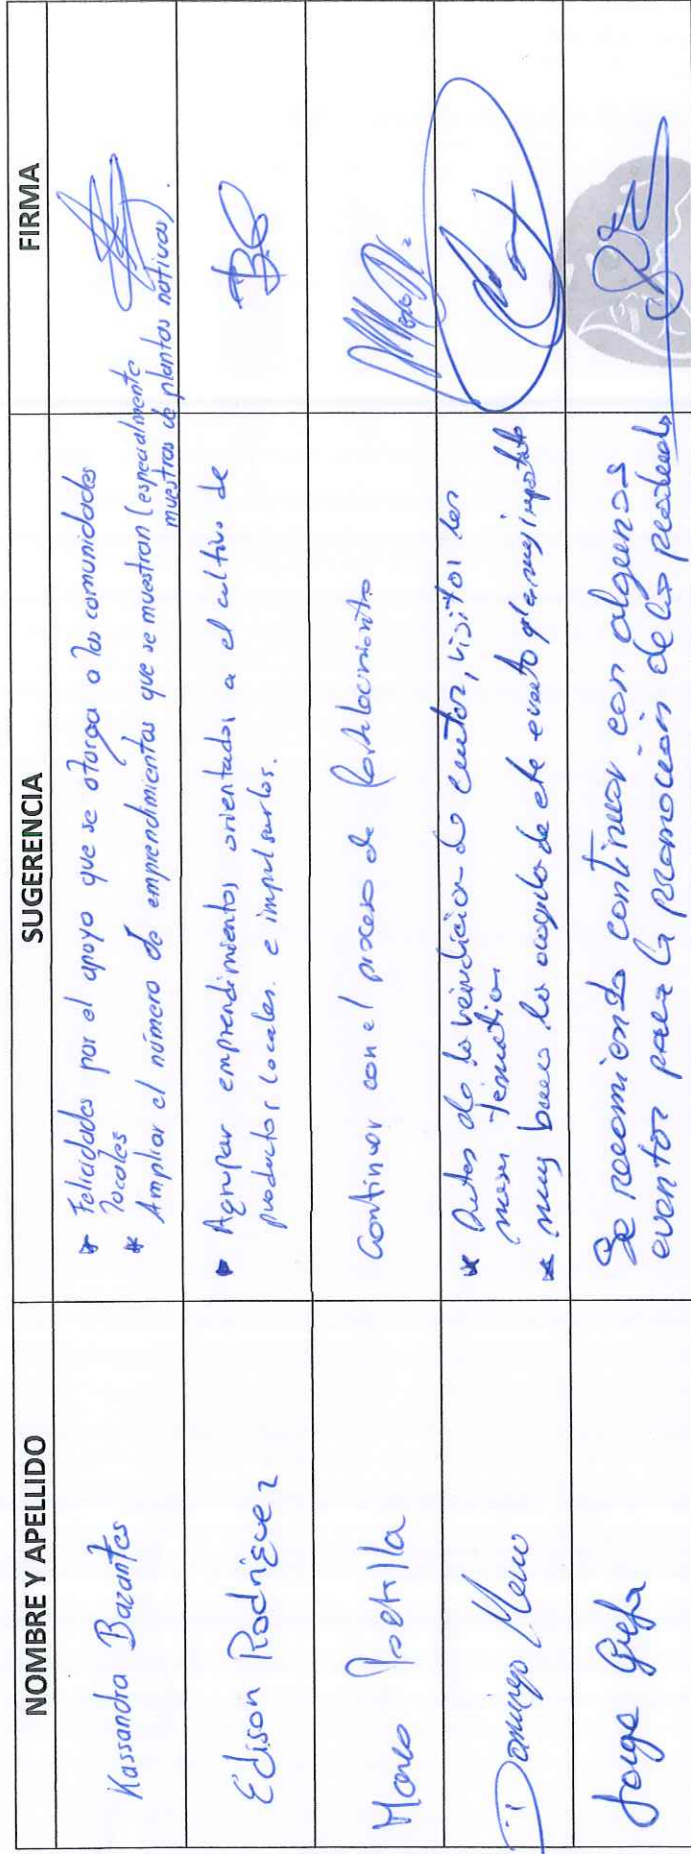 NOMBRE Y APELLIDO SUGERENCIA FIRMA
Kassandra Bazantes
* Felicidades por el apoyo que se otorga a las comunidades
locales
* Ampliar el número de emprendimientos que se muestran (especialmente
muestras de plantas nativas).
Edison Rodriguez
Agrupar emprendimientos orientados a el cultivo de
productos locales. e impulsarlos.
Marco
Continuar con el proceso de
Domingo
* Antes de la bendición de visitar las
mesas
* muy buena la acogida de este evento
Jorge Grefa
Se recomienda continuar con algunos
eventos para la promoción de los